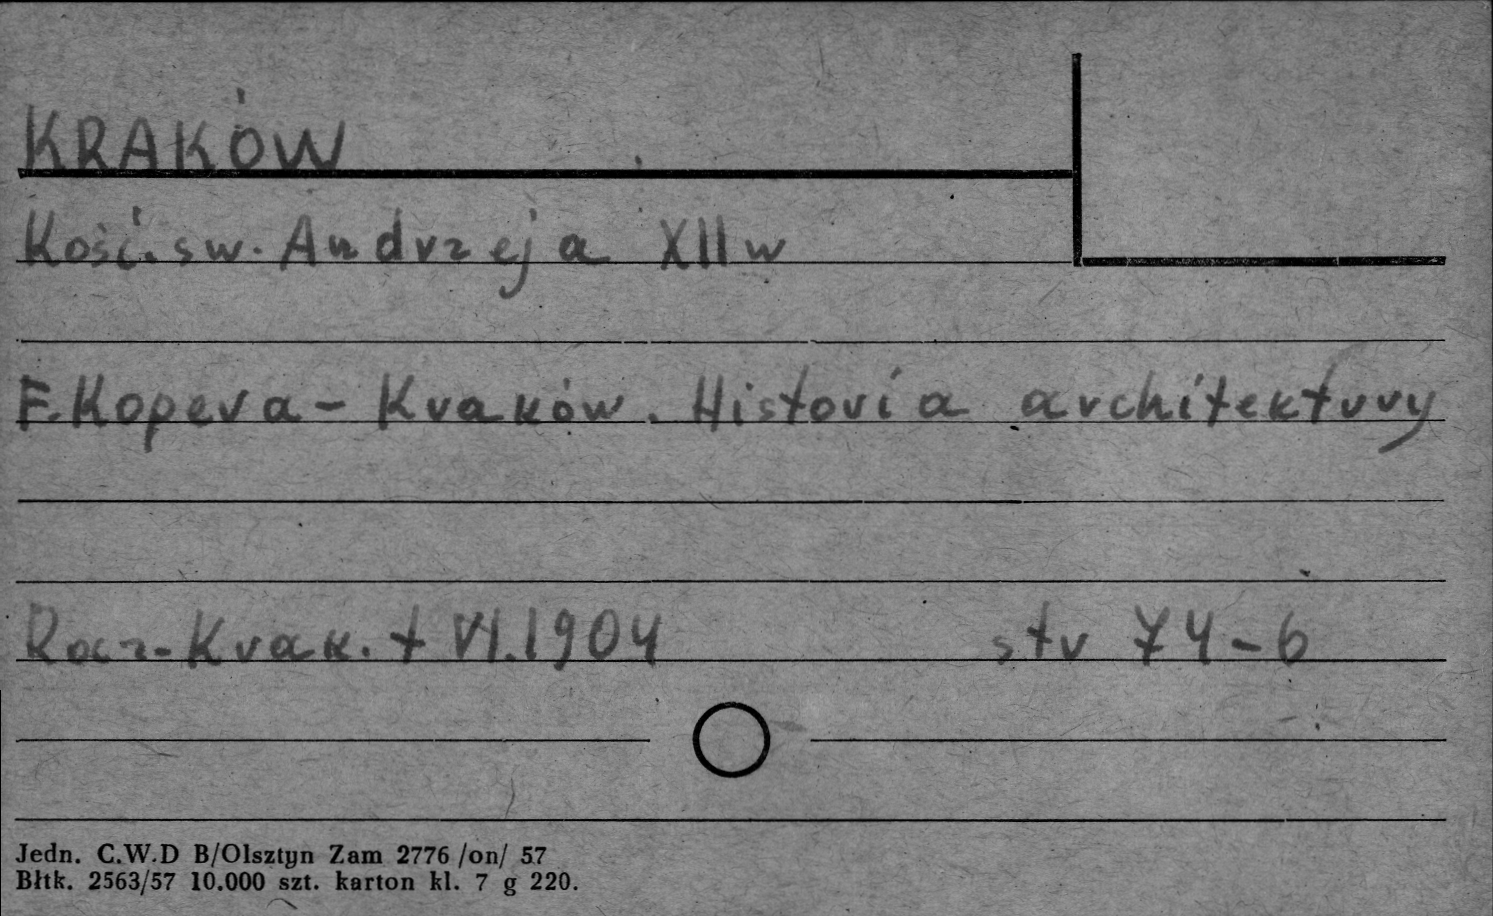 KRAKÓW
Kość. sw. Andrzeja XII w
F. Kopera - Kraków. Historia architektury
Rocz. Krak. t VI. 1904 str 74-6
Jedn. C.W.D B/Olsztyn Zam 2776 /on/ 57
Błtk. 2563/57 10.000 szt. karton kl. 7 g 220.